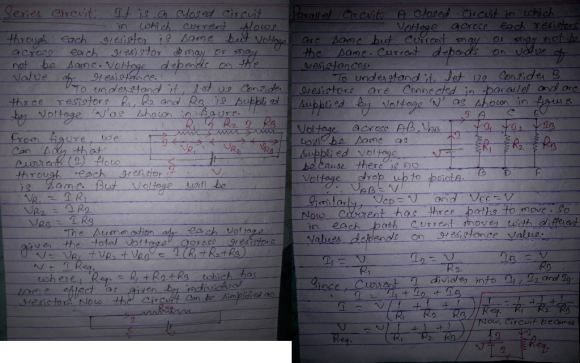 Series Circuit: It is a closed circuit
in which current flows
through each resistor is same but voltage
across each resistor may or may
not be same. Voltage depends on the
value of resistance.
To understand it, let us consider
three resistors R1, R2 and R3 is supplied
by voltage 'V' as shown in figure.
R1 R2 R3
From figure, we
can say that
current (I) flow
through each resistor
is same. But voltage will be
VR1 VR2 VR3
V
VR1 = IR1
VR2 = IR2
VR3 = IR3
The summation of each voltage
gives the total voltage across resistors
V = VR1 + VR2 + VR3 = I(R1+R2+R3)
V = I Req.
where, Req. = R1+R2+R3 which has
same effect as given by individual
resistors. Now the circuit can be simplified as
Req
Parallel Circuit: A closed circuit in which
Voltage across each resistor
are same but current may or may not be
the same. Current depends on value of
resistances.
To understand it, let us consider 3
resistors are connected in parallel and are
supplied by voltage 'V' as shown in figure
Voltage across AB, VAB
will be same as
supplied voltage
because there is no
voltage drop upto points.
A C E
I1 I2 I3
V R1 R2 R3
B D F
∴ VAB = V
Similarly, VCD = V and VEF = V
Now current has three paths to move. So
in each path current moves with different
values depends on resistance value.
I1 = V/R1 I2 = V/R2 I3 = V/R3
Since, Current I divides into I1, I2 and I3
∴ I = I1 + I2 + I3
I = V(1/R1 + 1/R2 + 1/R3)
1/Req = 1/R1 + 1/R2 + 1/R3
V/Req = V(1/R1 + 1/R2 + 1/R3)
Now, circuit becomes
V I Req.